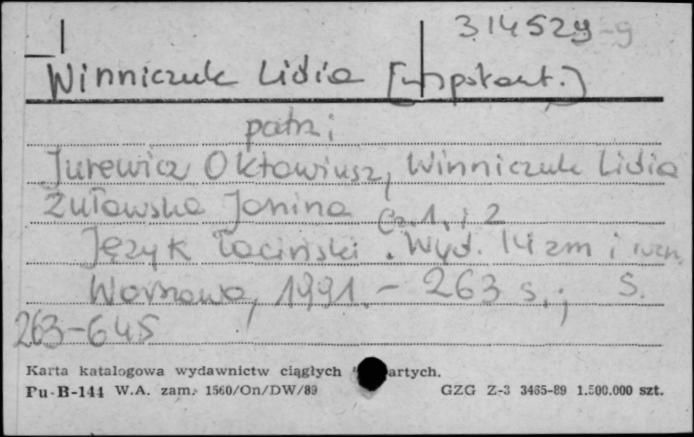 314529-9
Winniczuk Lidia [współaut.]
patrz:
Jurewicz Oktawiusz, Winniczuk Lidia
Żuławska Janina
Cz. 1. i 2
Język łaciński. Wyd. 14 zm i uzn.
Warszawa, 1991. - 263 s.; S.
263-645
Karta katalogowa wydawnictw ciągłych artych.
Pu-B-144 W.A. zam. 1560/On/DW/89 GZG Z-3 3465-89 1.500.000 szt.